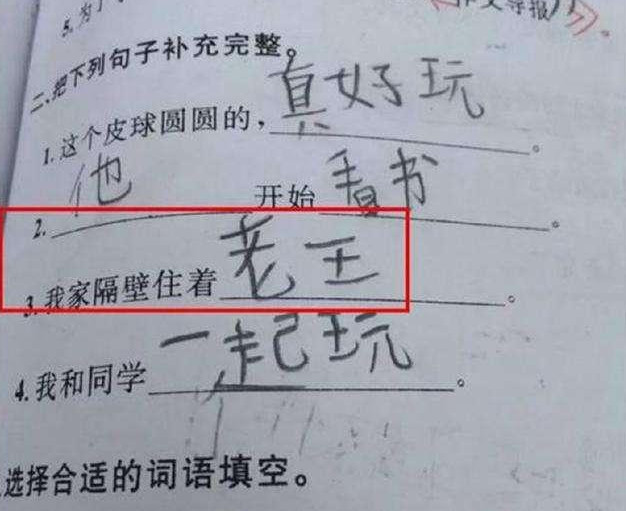 5.为
二、把下列句子补充完整。
1.这个皮球圆圆的，真好玩。
2.他开始看书。
3.我家隔壁住着老王。
4.我和同学一起玩。
选择合适的词语填空。